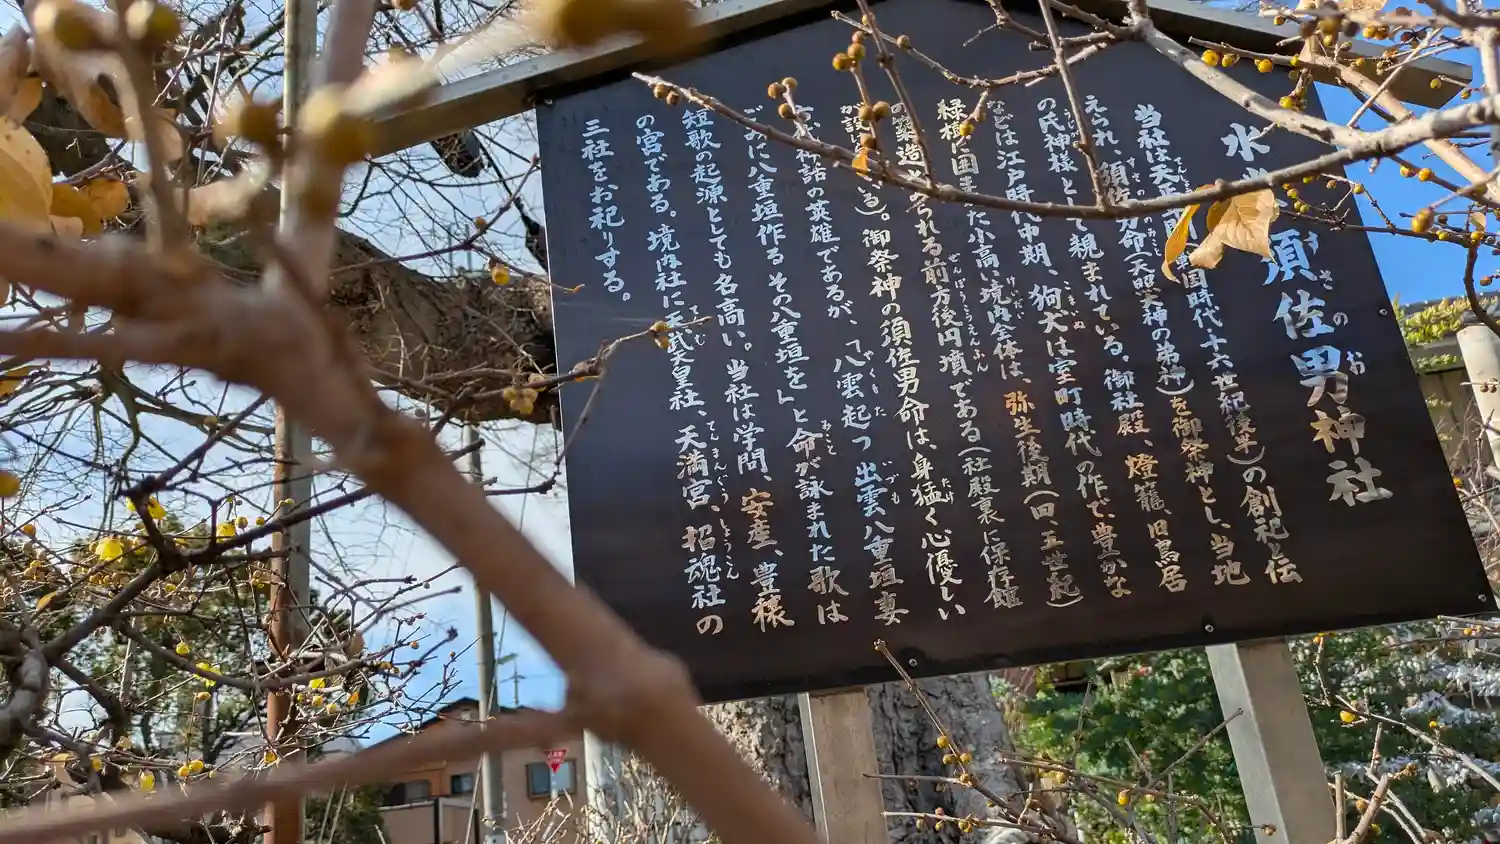 水 須佐男神社
すさのお
当社は天正 戦国時代十六世紀後半)の創祀と伝
えられ、須佐男命(天照大神の弟神)を御祭神とし、当地
の氏神様として親まれている。御社殿、燈籠、旧鳥居
などは江戸時代中期、狗犬は室町時代の作で、豊かな
緑樹に囲まれた小高い境内全体は、弥生後期(四、五世紀)
の築造と考えられる前方後円墳である(社殿裏に保存館
が設 る)。御祭神の須佐男命は、身猛く心優しい
古代神話の英雄であるが、「八雲起つ 出雲八重垣妻
ごみに八重垣作る その八重垣を」と命が詠まれた歌は
短歌の起源としても名高い。当社は学問、安産、豊穣
の宮である。境内社に天武天皇社、天満宮、招魂社の
三社をお祀りする。